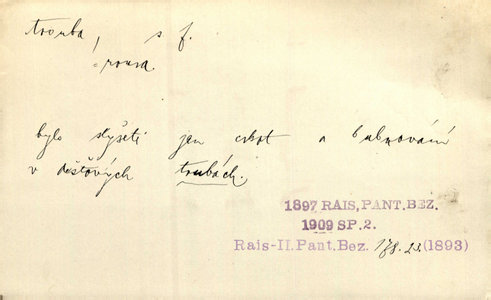 trouba, s f.
roura.
bylo slyšeti jen crkot a bubnování
v dešťových troubách.
1897 RAIS, PANT. BEZ.
1909 SP. 2.
Rais-II. Pant. Bez. 178.23 (1893)